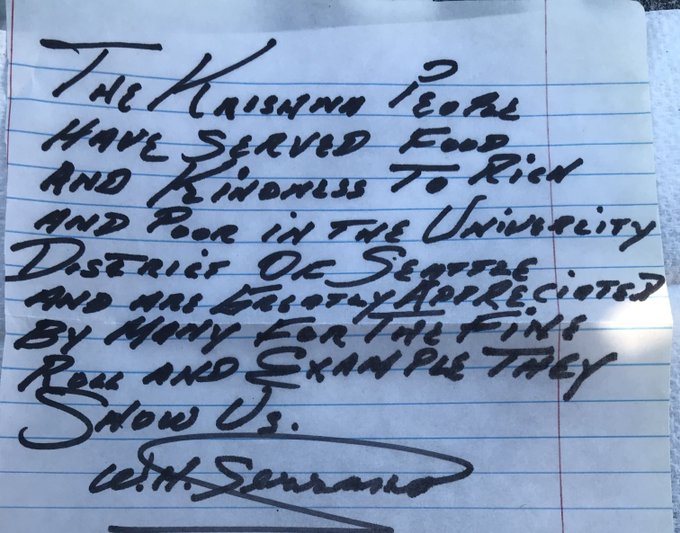 The Krishna People
Have Served Food
And Kindness To Rich
And Poor in the Univercity
District Of Seattle
And are Greatly Appreciated
By Many For The Fine
Roll and Example They
Show Us.
W.H. Serrano